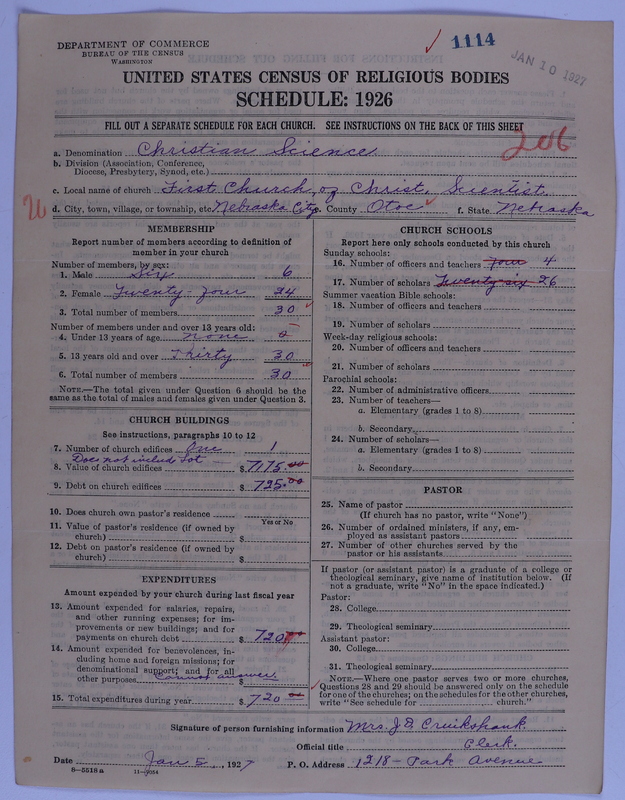 DEPARTMENT OF COMMERCE
BUREAU OF THE CENSUS
WASHINGTON
1114
JAN 10 1927
UNITED STATES CENSUS OF RELIGIOUS BODIES
SCHEDULE: 1926
FILL OUT A SEPARATE SCHEDULE FOR EACH CHURCH. SEE INSTRUCTIONS ON THE BACK OF THIS SHEET
206
a. Denomination Christian Science
b. Division (Association, Conference,
Diocese, Presbytery, Synod, etc.)
c. Local name of church First Church, of Christ, Scientist.
d. City, town, village, or township, etc. Nebraska City. County Otoe f. State Nebraska
MEMBERSHIP
Report number of members according to definition of
member in your church
Number of members, by sex:
1. Male Six 6
2. Female Twenty-four 24
3. Total number of members 30
Number of members under and over 13 years old:
4. Under 13 years of age none 0
5. 13 years old and over Thirty 30
6. Total number of members 30
NOTE.—The total given under Question 6 should be the
same as the total of males and females given under Question 3.
CHURCH BUILDINGS
See instructions, paragraphs 10 to 12
7. Number of church edifices One 1
Does not include Lot
8. Value of church edifices $ 7175.00
9. Debt on church edifices $ 725.00
10. Does church own pastor's residence
Yes or No
11. Value of pastor's residence (if owned by
church) $
12. Debt on pastor's residence (if owned by
church) $
EXPENDITURES
Amount expended by your church during last fiscal year
13. Amount expended for salaries, repairs,
and other running expenses; for im-
provements or new buildings; and for
payments on church debt $ 720
14. Amount expended for benevolences, in-
cluding home and foreign missions; for
denominational support; and for all
other purposes Cannot answer $
15. Total expenditures during year $ 720 00
CHURCH SCHOOLS
Report here only schools conducted by this church
Sunday schools:
16. Number of officers and teachers four 4
17. Number of scholars Twenty-six 26
Summer vacation Bible schools:
18. Number of officers and teachers
19. Number of scholars
Week-day religious schools:
20. Number of officers and teachers
21. Number of scholars
Parochial schools:
22. Number of administrative officers
23. Number of teachers—
a. Elementary (grades 1 to 8)
b. Secondary
24. Number of scholars—
a. Elementary (grades 1 to 8)
b. Secondary
PASTOR
25. Name of pastor
(If church has no pastor, write "None")
26. Number of ordained ministers, if any, em-
ployed as assistant pastors
27. Number of other churches served by the
pastor or his assistants
If pastor (or assistant pastor) is a graduate of a college or
theological seminary, give name of institution below. (If
not a graduate, write "No" in the space indicated.)
Pastor:
28. College
29. Theological seminary
Assistant pastor:
30. College
31. Theological seminary
NOTE.—Where one pastor serves two or more churches,
Questions 28 and 29 should be answered only on the schedule
for one of the churches; on the schedules for the other churches,
write "See schedule for church."
Signature of person furnishing information Mrs. J. D. Cruikshank
Official title Clerk.
Date Jan 5, 1927 P. O. Address 1218- Park Avenue
8-5518 a